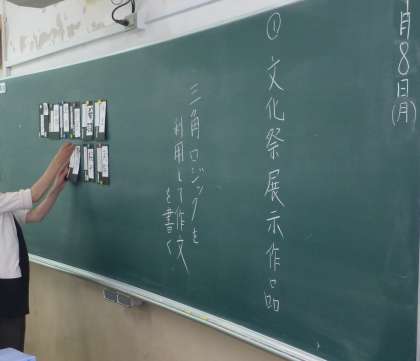 月8日(月)
① 文化祭展示作品
三角ロジックを
利用して作文
を書く